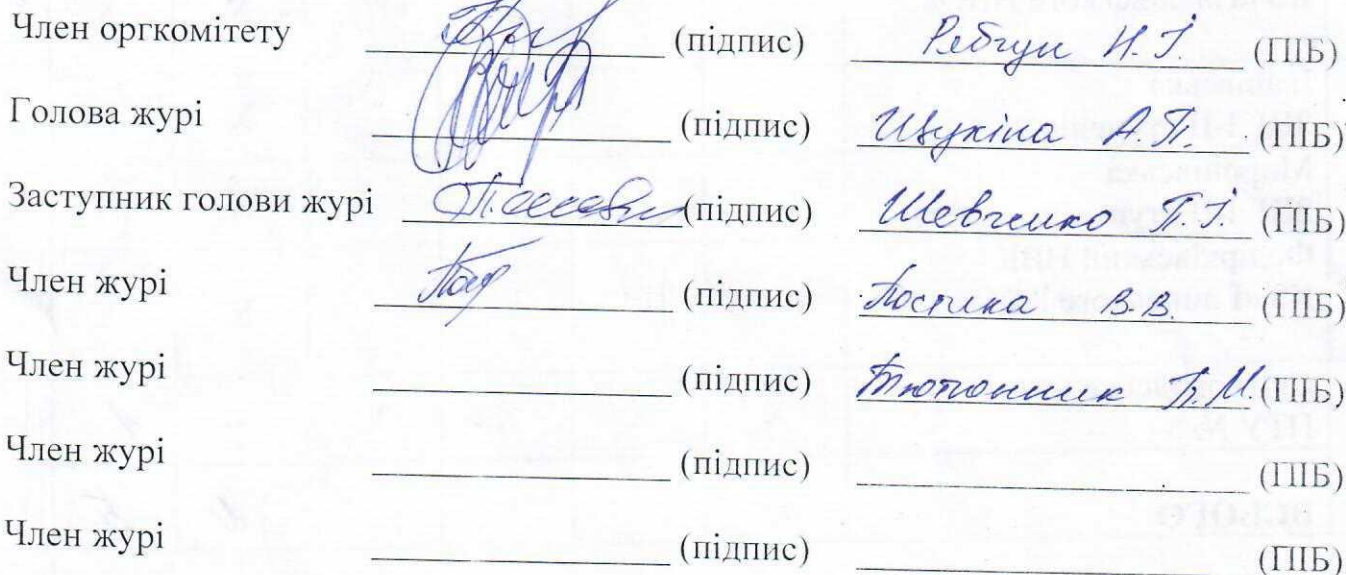 Член оргкомітету (підпис) Рябчун Н. І. (ПІБ)
Голова журі (підпис) Щукіна А. П. (ПІБ)
Заступник голови журі (підпис) Шевченко П. І. (ПІБ)
Член журі (підпис) В. В. (ПІБ)
Член журі (підпис) Тютюнник П. М. (ПІБ)
Член журі (підпис) (ПІБ)
Член журі (підпис) (ПІБ)